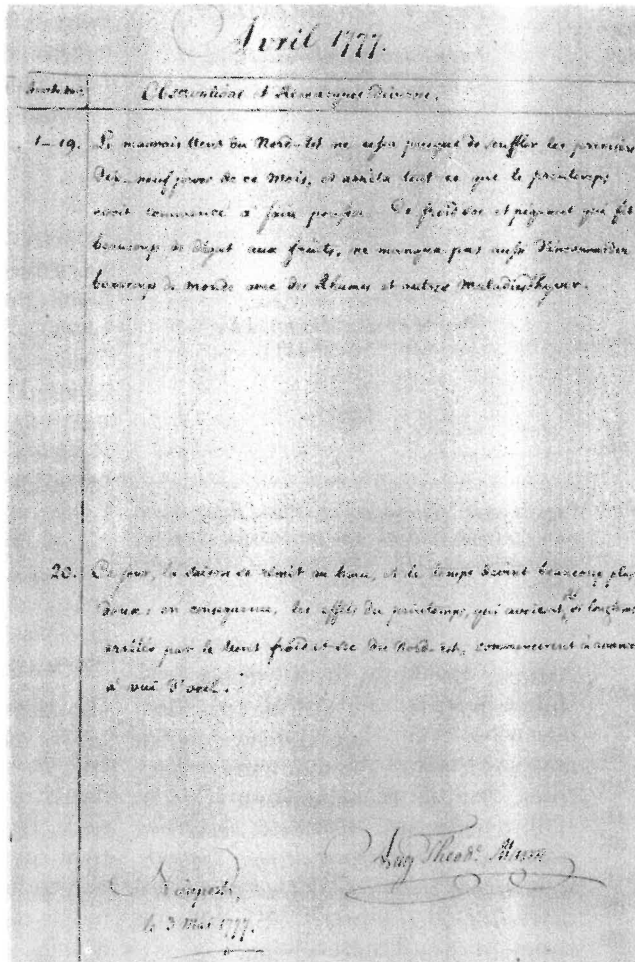 Avril 1777.
Observations et Remarques diverses.
1–19. Le mauvais vent du Nord-est ne cessa presque de souffler les premiers
dix-neuf jours de ce Mois, et arrêta tout ce que le printemps
avoit commencé à faire pousser. Ce froid sec et qui fit
beaucoup de dégat aux fruits, ne manqua pas aussi d'incommoder
beaucoup de monde avec des Rhumes et autres Maladies d'hyver.
20. Ce jour, la saison se remit au beau, et le temps devint beaucoup plus
doux: en consequence, les effets du printemps, qui avoient été si longtems
arrêtés par le vent froid et sec du Nord-est, commencerent à avancer
à vue d'oeil.
Aug Theodr. Mann
Nieuport,
le 3 Mai 1777.